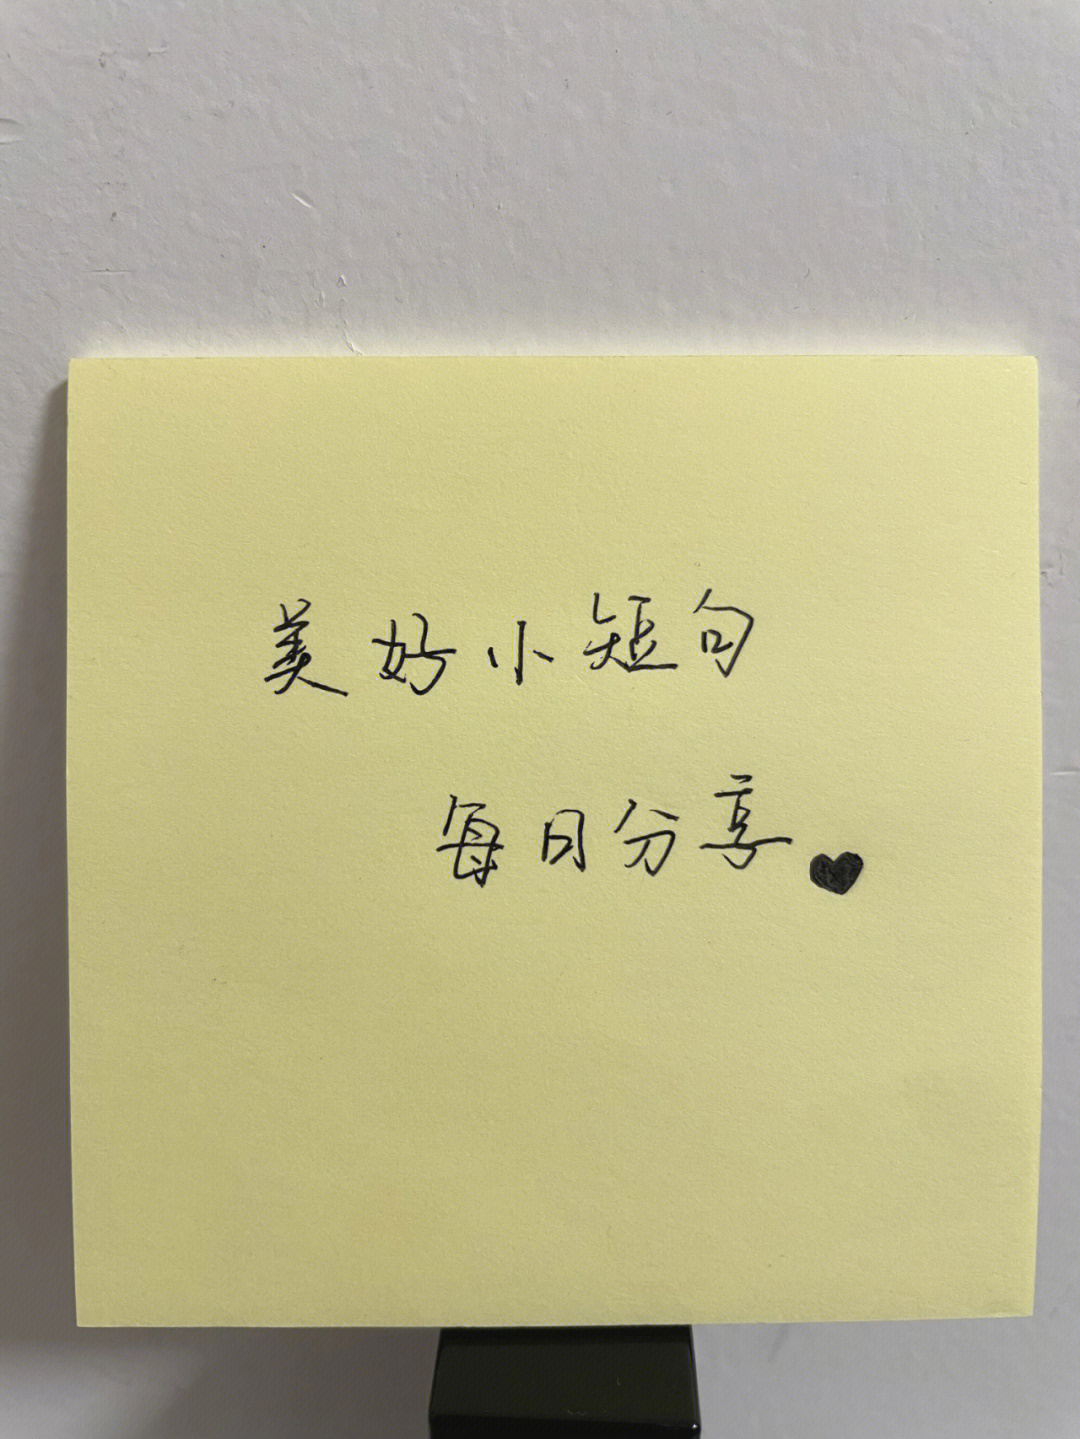 美好小短句
每日分享